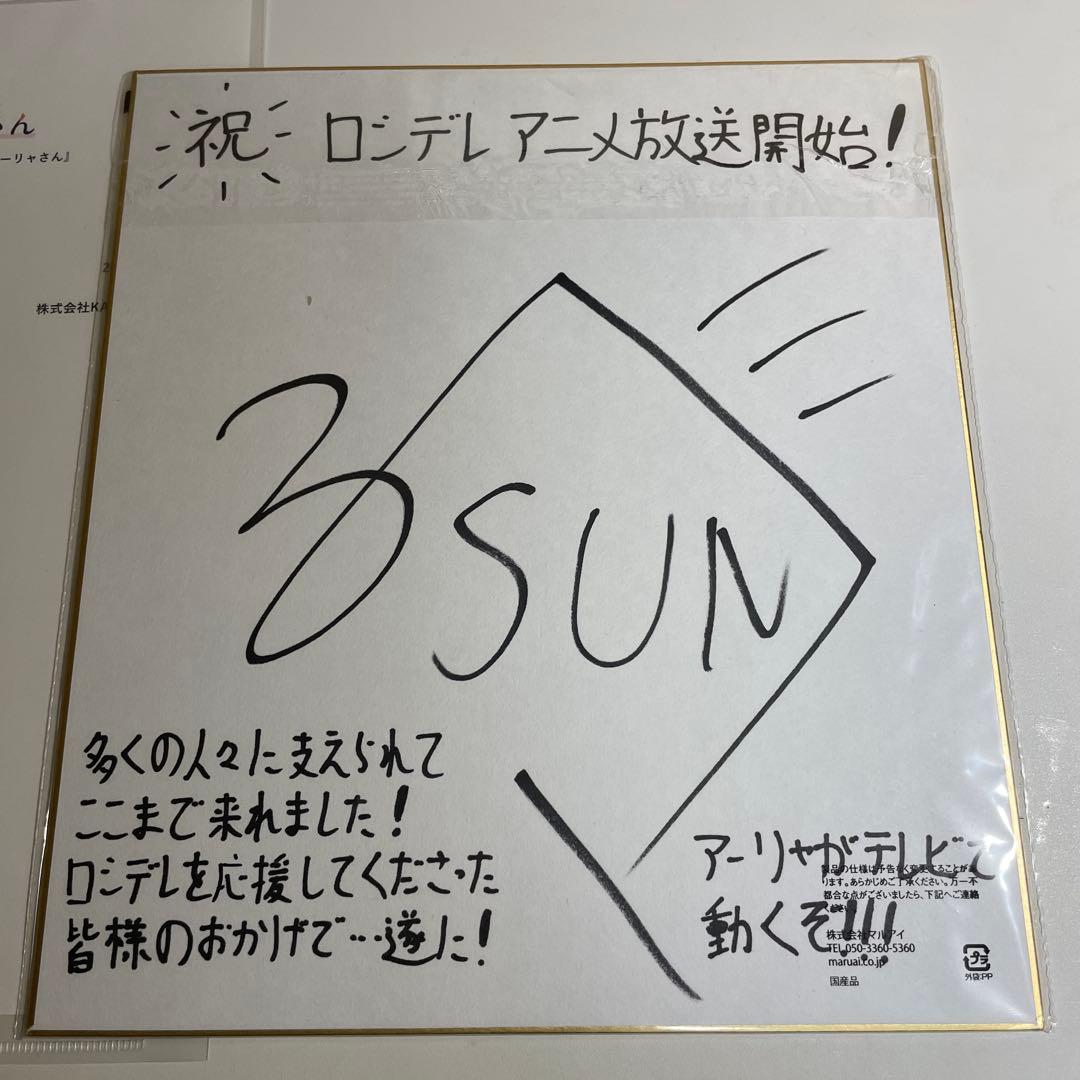 祝 ロシデレアニメ放送開始!
ーリャさん』
株式会社KA
SUN
多くの人々に支えられて
ここまで来れました!
ロシデレを応援してくださった
皆様のおかげで…遂に!
アーリャがテレビで
動くぞ!!!
製品の仕様は予告なく変更することがあ
ります。あらかじめご了承ください。万一不
都合な点がございましたら、下記へご連絡
ください。
株式会社マルアイ
TEL 050-3360-5360
maruai.co.jp
国産品
プラ
外袋:PP